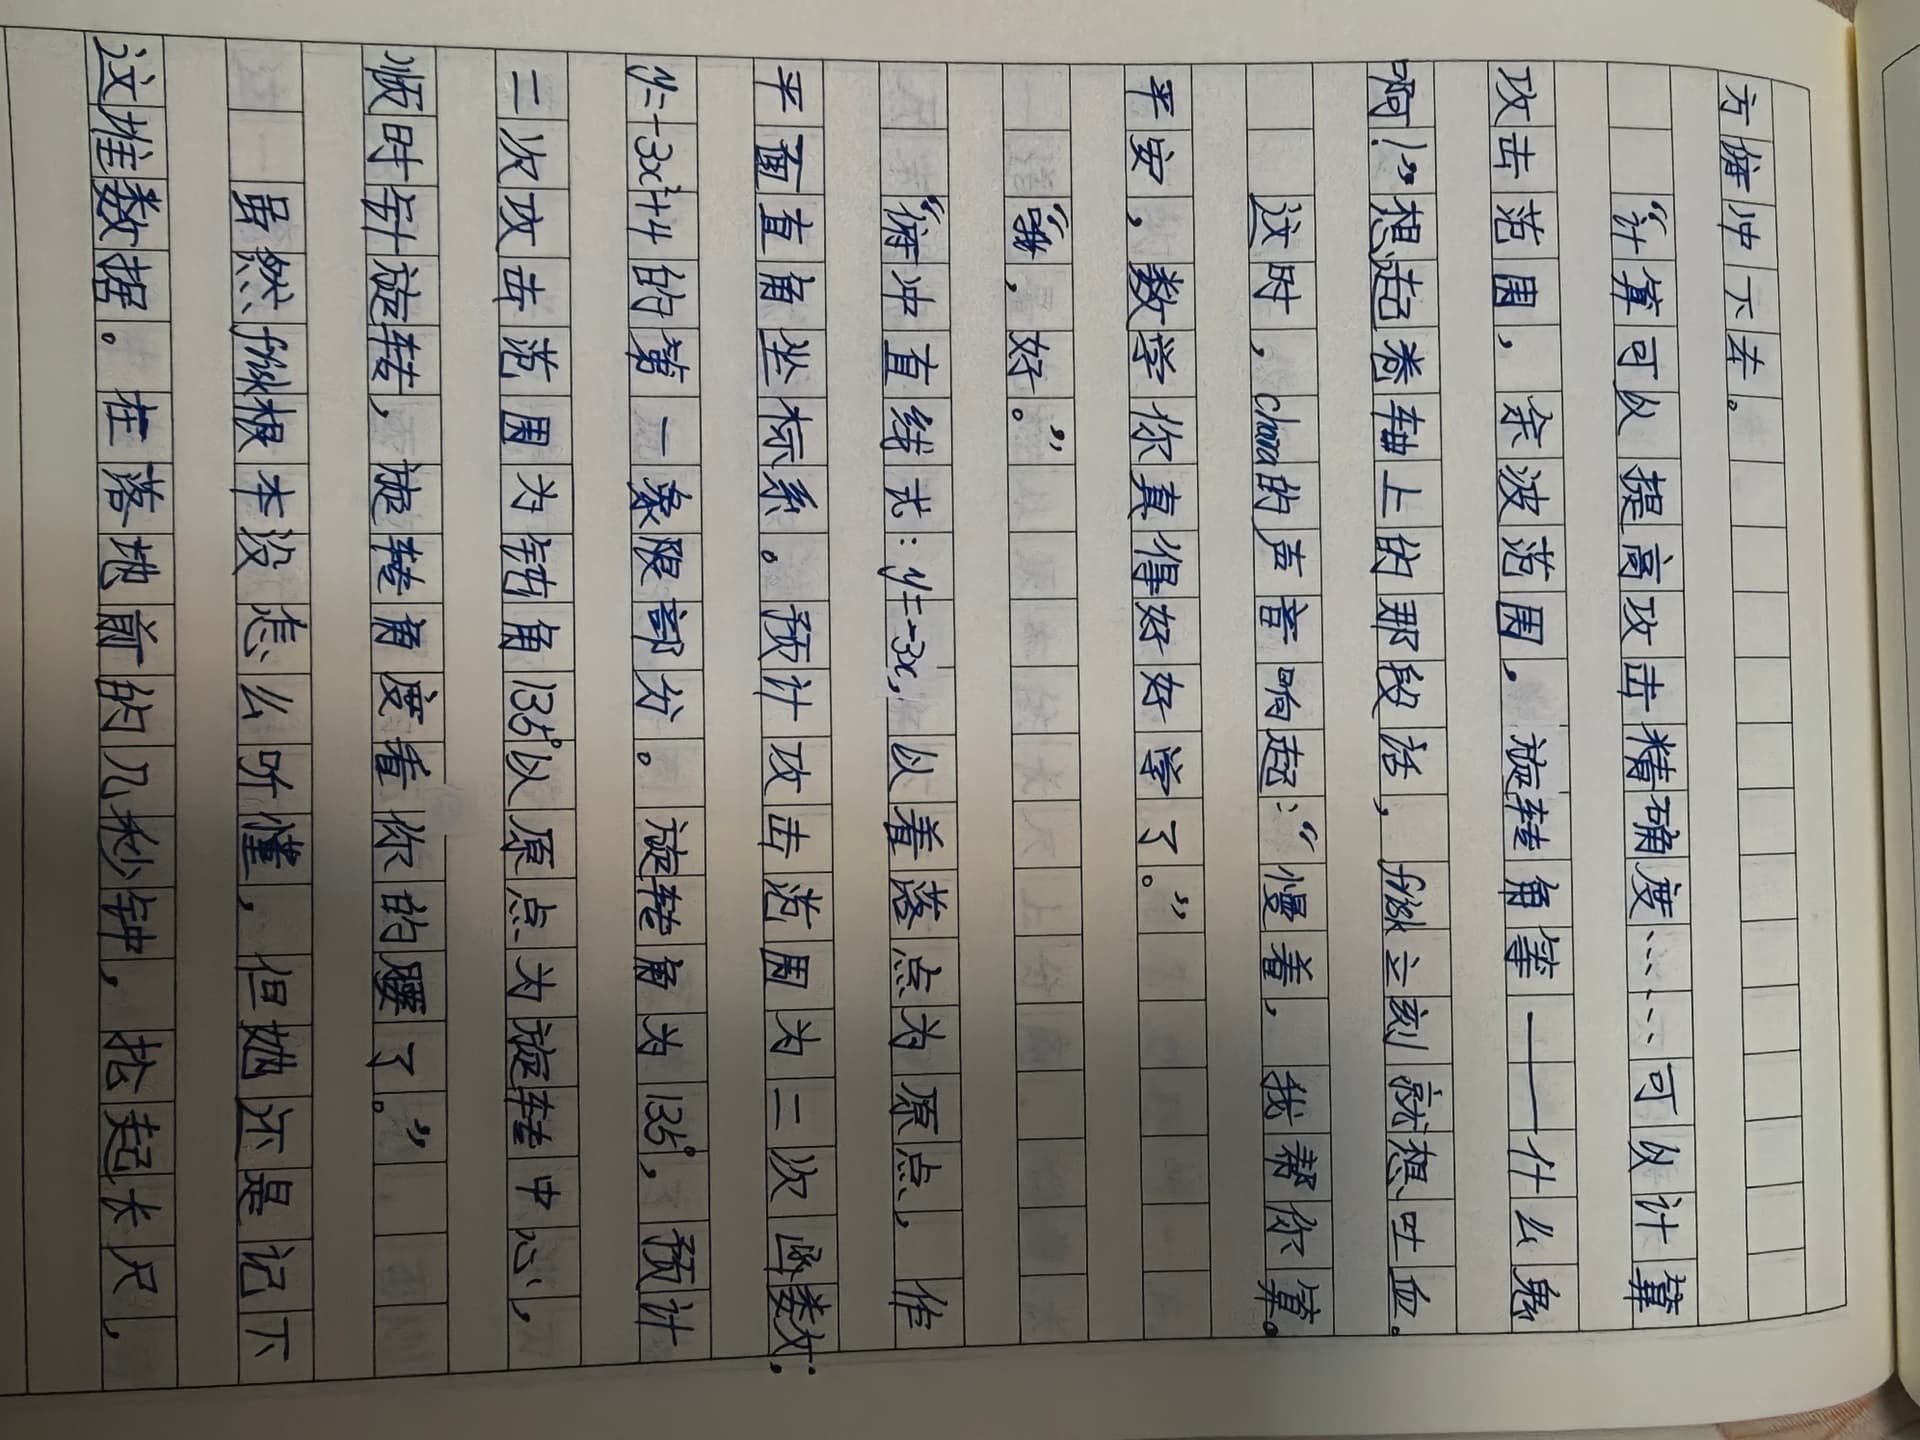 方俯冲下去。
“计算可以提高攻击精确度……可以计算
攻击范围,余波范围,旋转角等——什么鬼
啊!”想起卷轴上的那段话,frisk立刻就想吐血。
这时,chara的声音响起:“慢着,我帮你算。
平安,数学你真得好好学了。”
“哦,好。”
“俯冲直线式:y=-3x,以着落点为原点,作
平面直角坐标系。预计攻击范围为二次函数:
y=-3x²+4的第一象限部分。旋转角为135°,预计
二次攻击范围为钝角135°以原点为旋转中心,
顺时针旋转,旋转角度看你的腰了。”
虽然frisk根本没怎么听懂,但她还是记下
这堆数据。在落地前的几秒钟,抡起长尺,